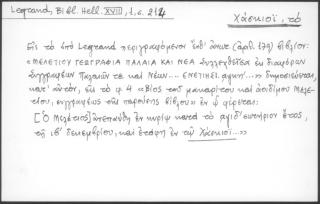 Legrand, Bibl. Hell. XVIII, 1, σ. 214
Χάσκιοϊ, τὸ
Εἰς τὸ ὑπὸ Legrand περιγραφόμενον ἐνθ' ἀνωτ. (ἀριθ. 179) βιβλίον:
"ΜΕΛΕΤΙΟΥ ΓΕΩΓΡΑΦΙΑ ΠΑΛΑΙΑ ΚΑΙ ΝΕΑ Συλλεχθεῖσα ἐκ διαφόρων
Συγγραφέων Παλαιῶν τε καὶ Νέων... ΕΝΕΤΙΗΣΙ. αψκη'...» δημοσιεύεται,
κατ' αὐτόν, εἰς τὸ φ. 4 «Βίος τοῦ μακαρίτου καὶ ἀοιδίμου Μελε-
τίου, συγγραφέως τῆς παρούσης βίβλου» ἐν ᾧ φέρεται:
[Ὁ Μελέτιος] ἀπεπαύθη ἐν κυρίῳ κατὰ τὸ αψιδ' σωτήριον ἔτος,
τῇ ιβ' δεκεμβρίου, καὶ ἐτάφη ἐν τῷ Χάσκιοϊ...»